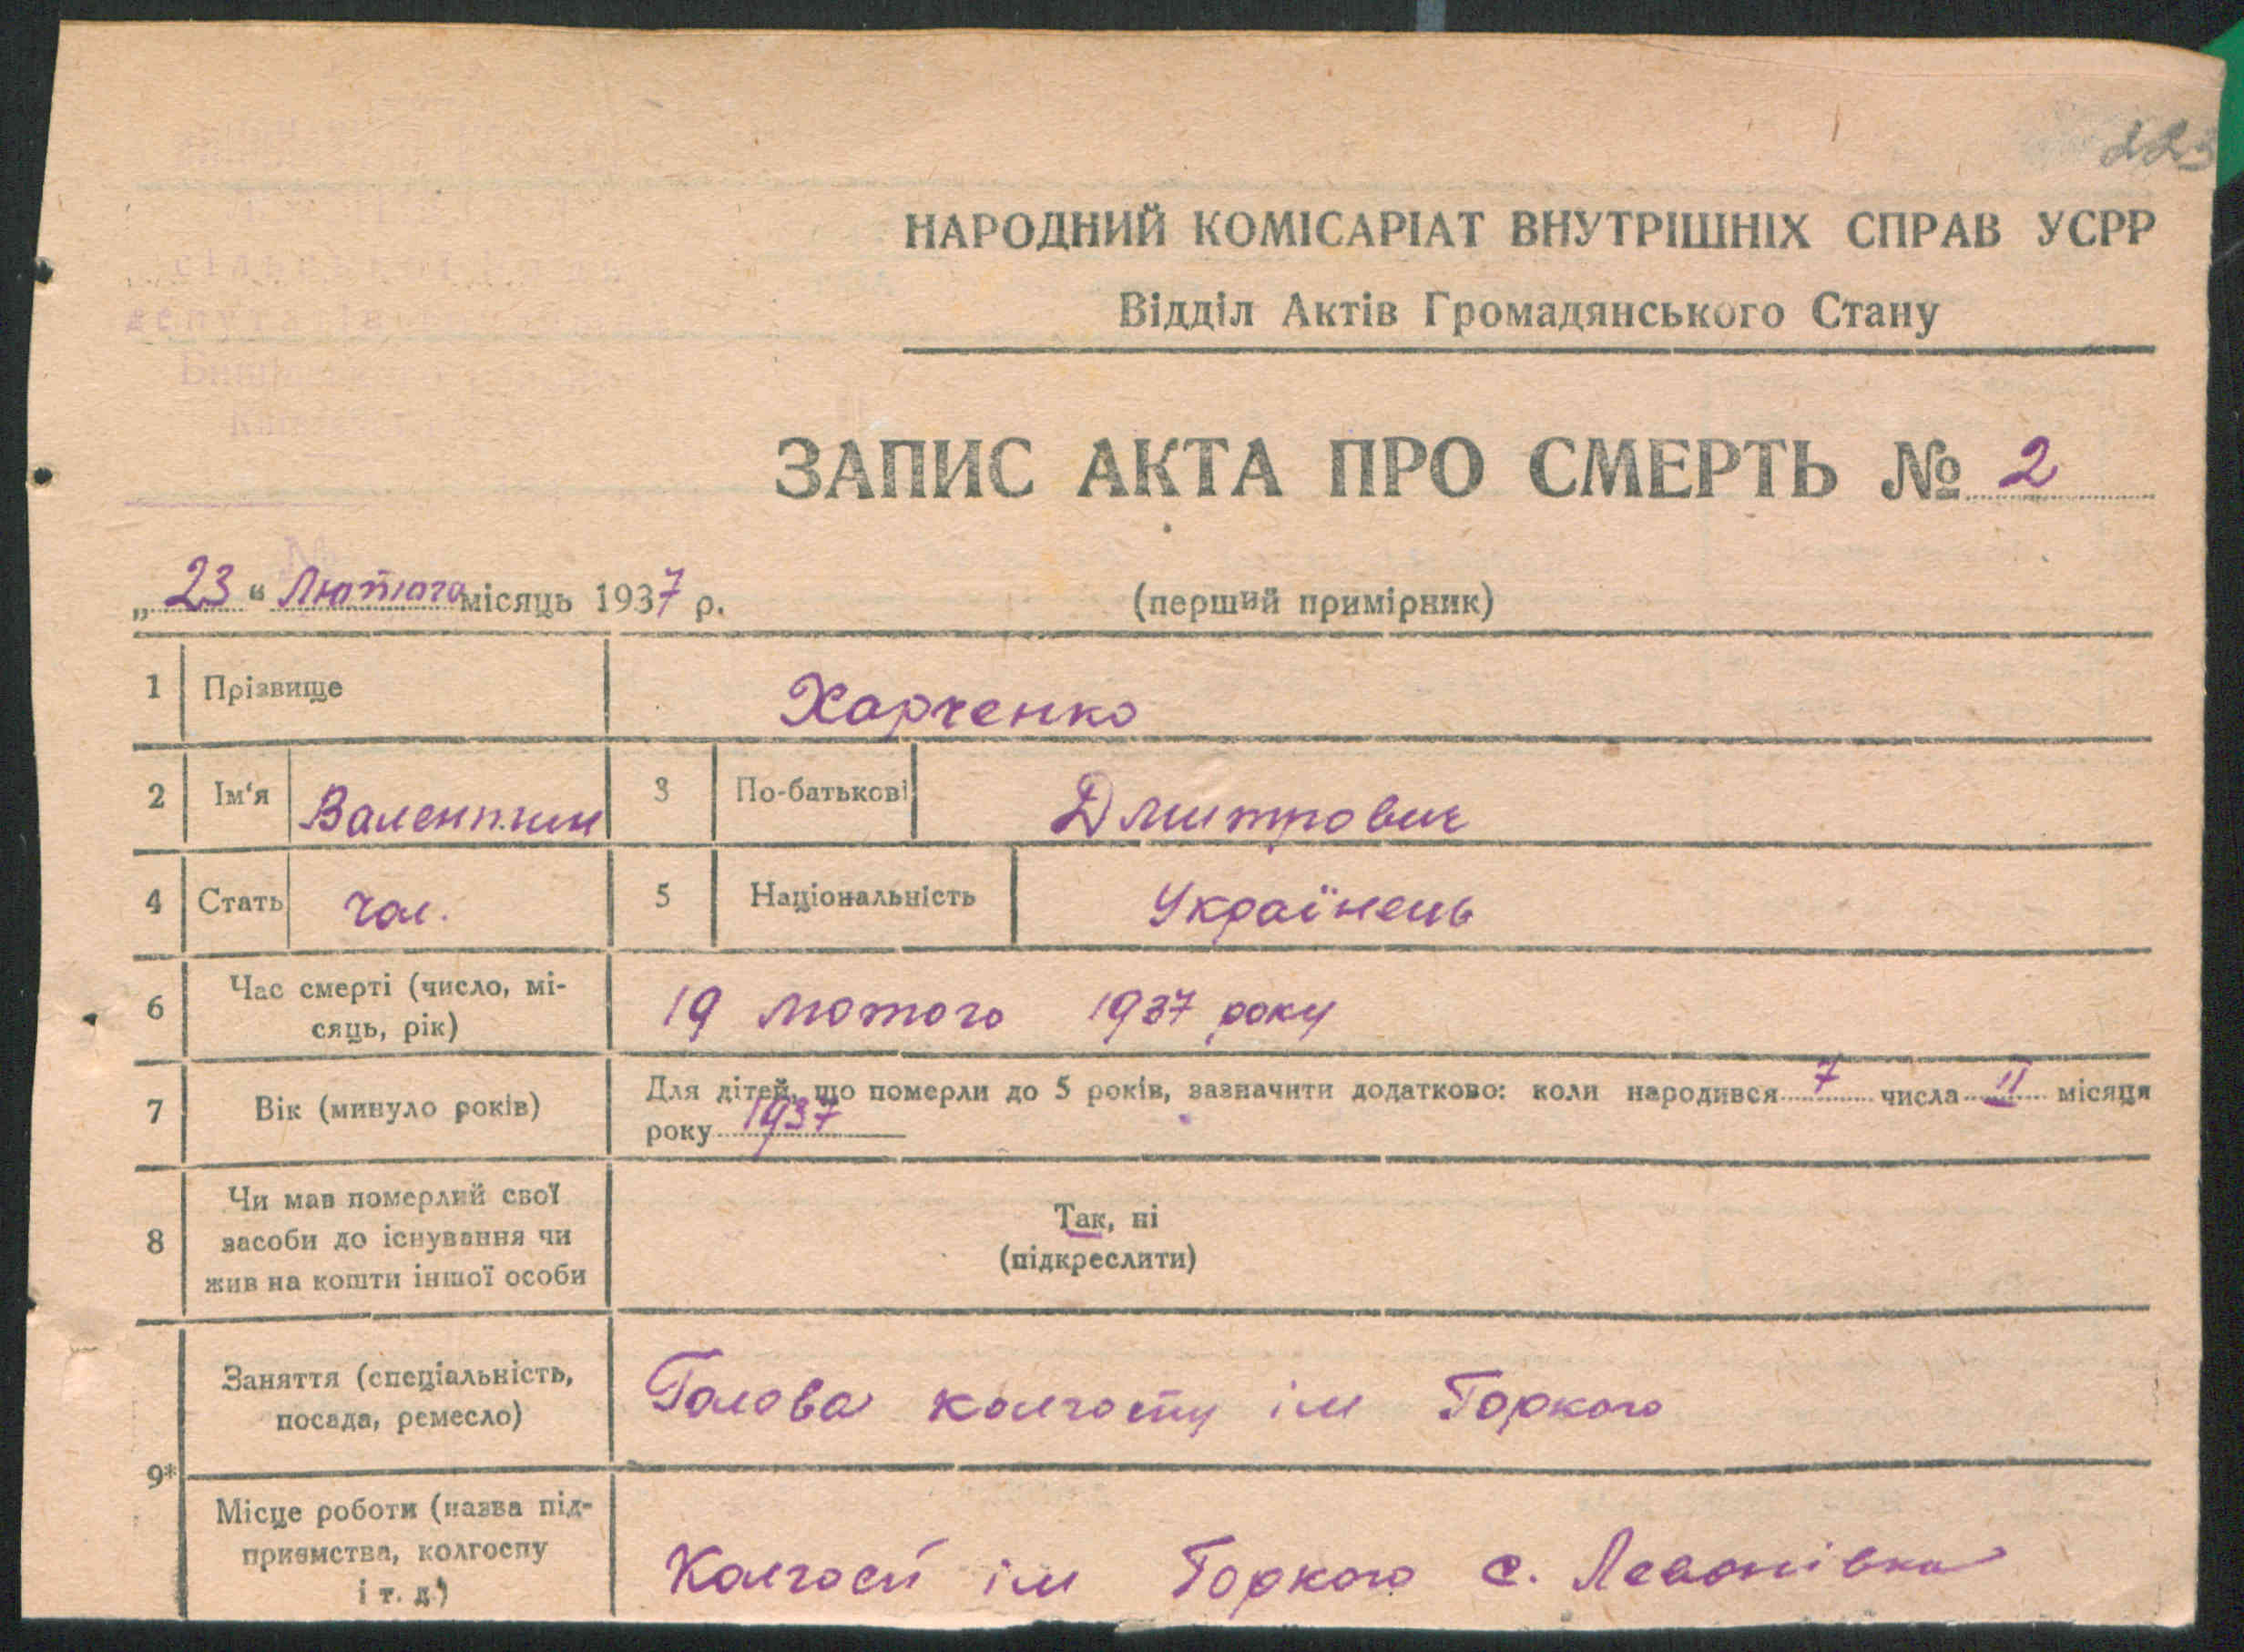 223
НАРОДНИЙ КОМІСАРІАТ ВНУТРІШНІХ СПРАВ УСРР
Відділ Актів Громадянського Стану
ЗАПИС АКТА ПРО СМЕРТЬ № 2
„ 23 “ Лютого місяць 1937 р. (перший примірник)
1 Прізвище Харченко
2 Ім‘я Валентин 3 По-батькові Дмитрович
4 Стать чол. 5 Національність Українець
6 Час смерті (число, мі-
сяць, рік) 19 лютого 1937 року
7 Вік (минуло років) Для дітей, що померли до 5 років, зазначити додатково: коли народився 7 числа II місяця
року 1937
8 Чи мав померлий свої
засоби до існування чи
жив на кошти іншої особи
Так, ні
(підкреслити)
9*
Заняття (спеціальність,
посада, ремесло) Голова колгоспу ім Горкого
Місце роботи (назва під-
приємства, колгоспу
і т. д.) Колгосп ім Горкого с.